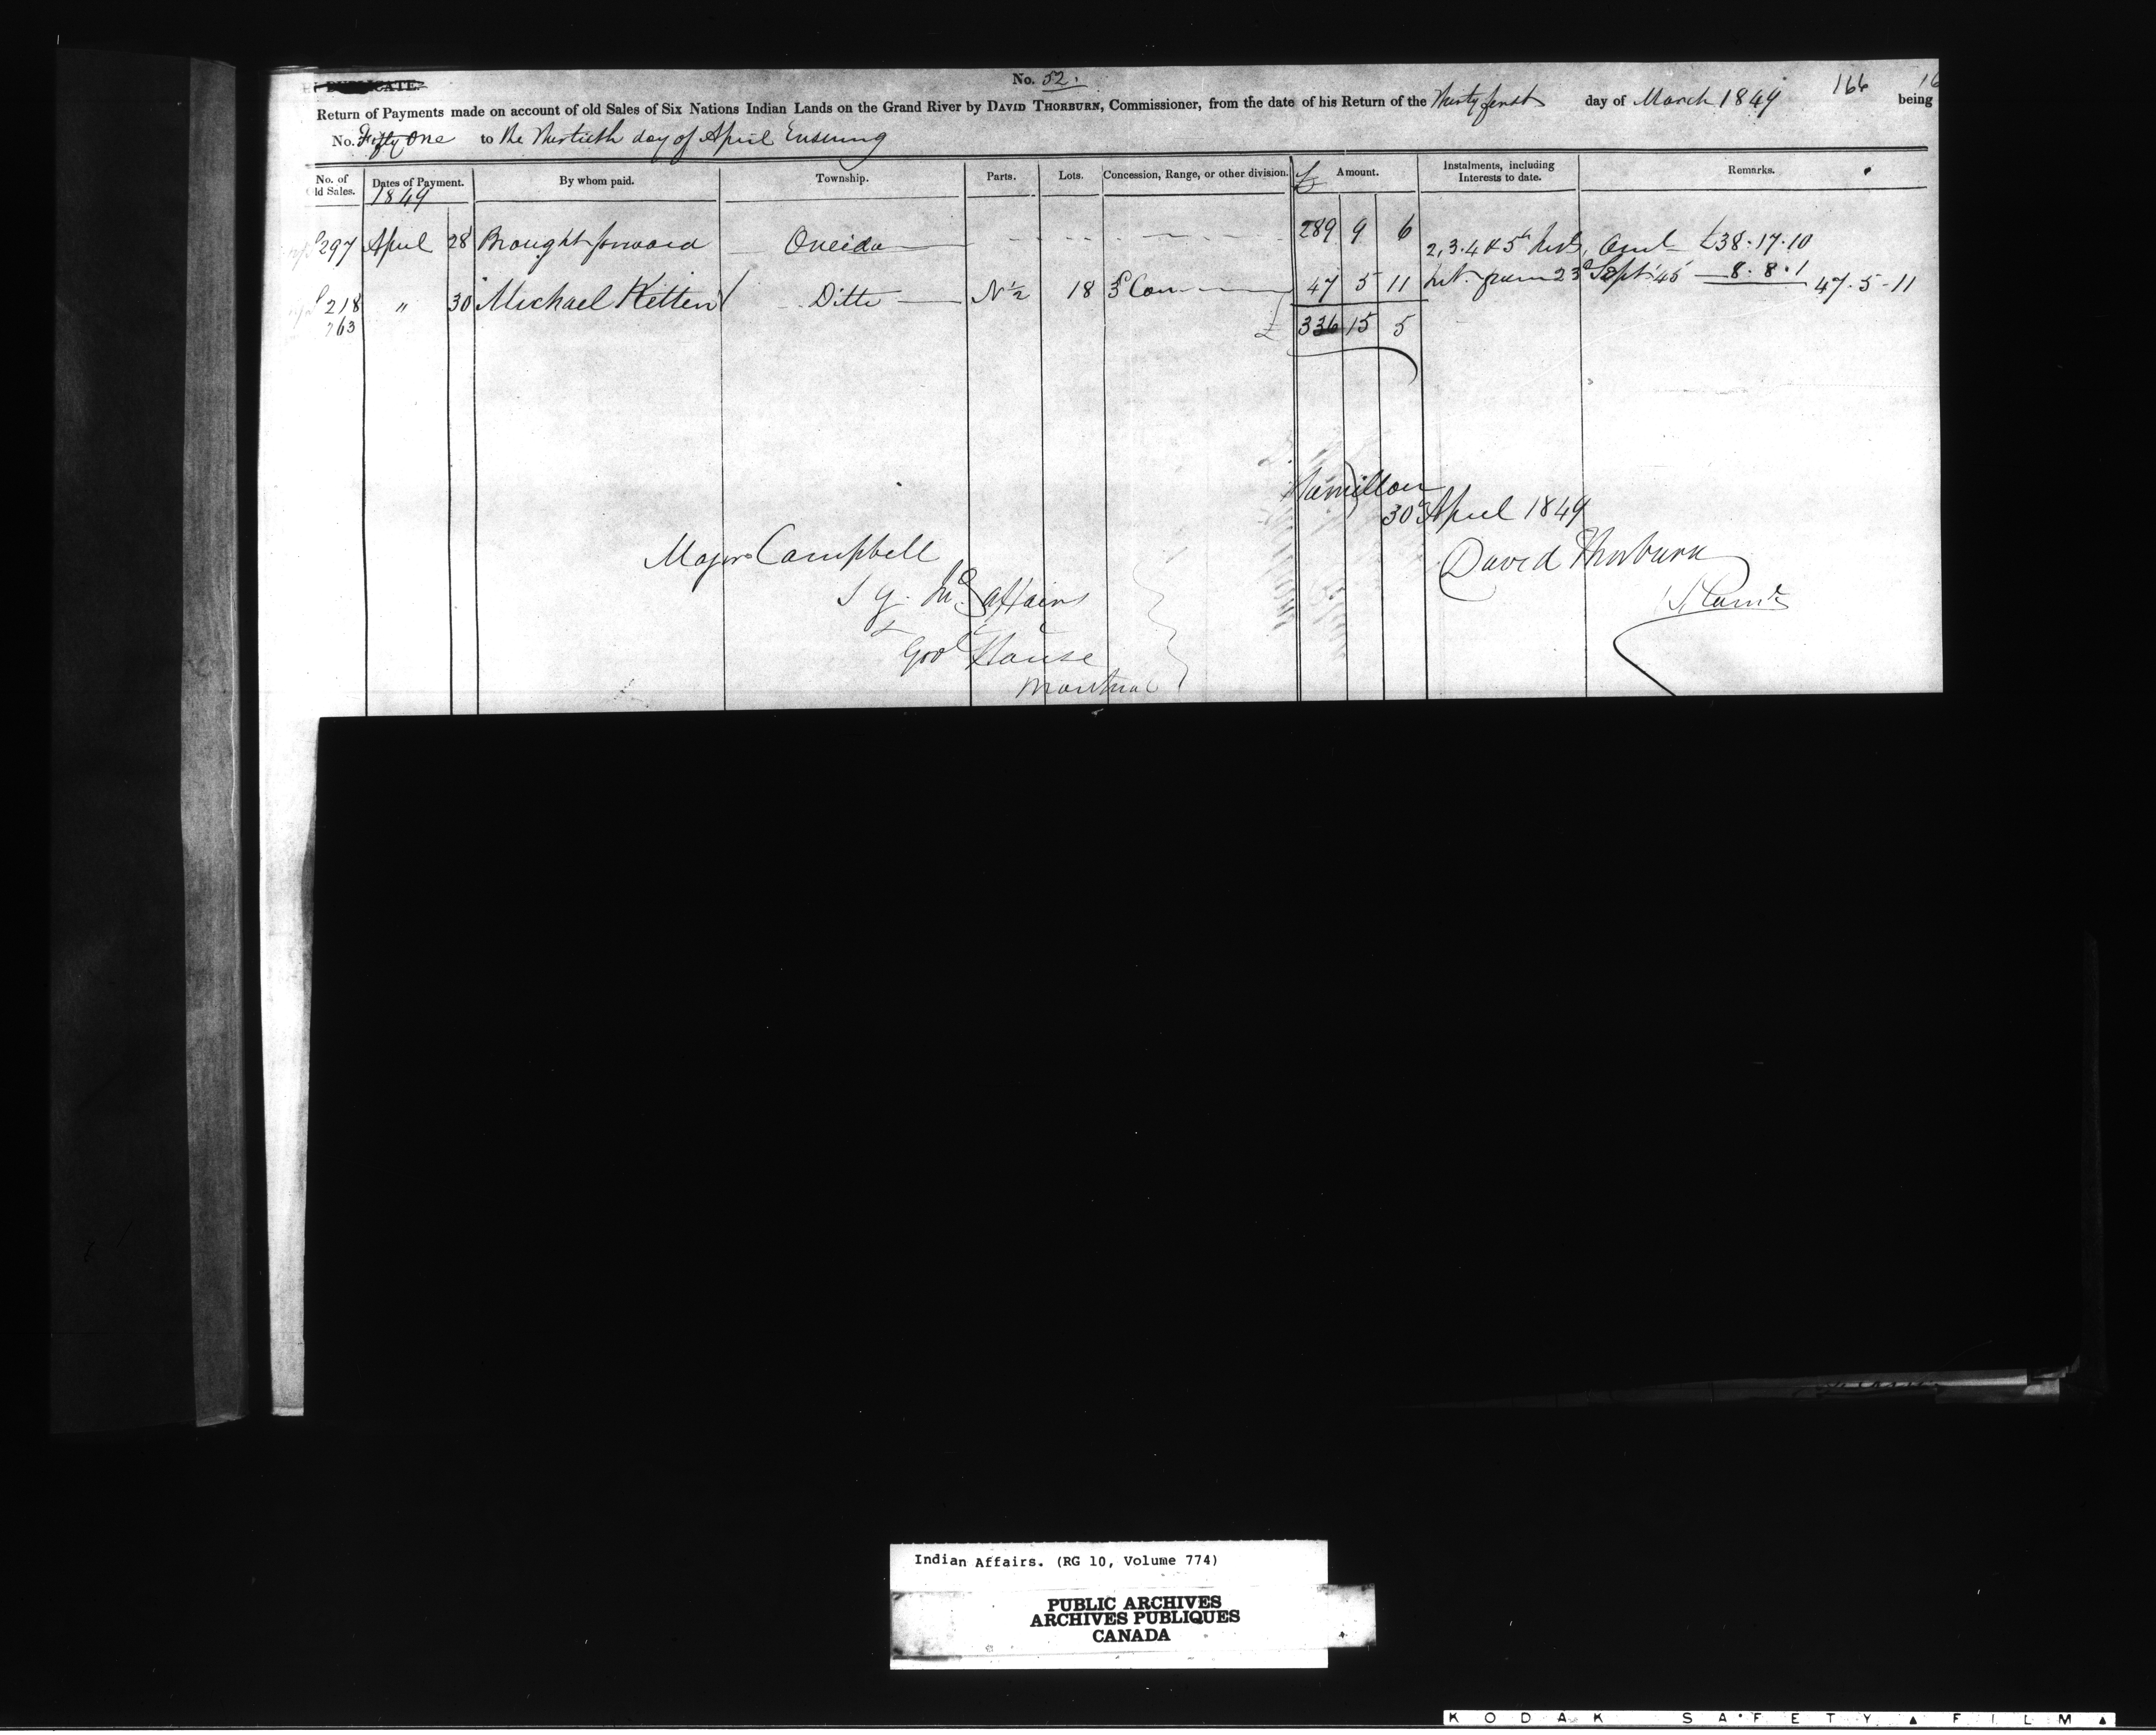 IN DUPLICATE.
No. 52.
166
Return of Payments made on account of old Sales of Six Nations Indian Lands on the Grand River by DAVID THORBURN, Commissioner, from the date of his Return of the Thirty first day of March 1849 being
No. Fifty One to the Thirtieth day of April Ensuing
No. of Old Sales. Dates of Payment. By whom paid. Township. Parts. Lots. Concession, Range, or other division. £ Amount. Instalments, including Interests to date. Remarks.
1849
297 April 28 Brought forward Oneida 289 9 6 2, 3. 4 & 5th Amt £38.17.10
218 " 30 Michael Ketten Ditto N ½ 18 3d Con 47 5 11 Int. from 23d Sept. 45 8.8.1 47.5-11
763 £ 336 15 5
Hamilton
30 April 1849
Major Campbell David Thorburn
S G. In. affairs
Govt House
Montreal
Indian Affairs. (RG 10, Volume 774)
PUBLIC ARCHIVES
ARCHIVES PUBLIQUES
CANADA
KODAK SAFETY FILM